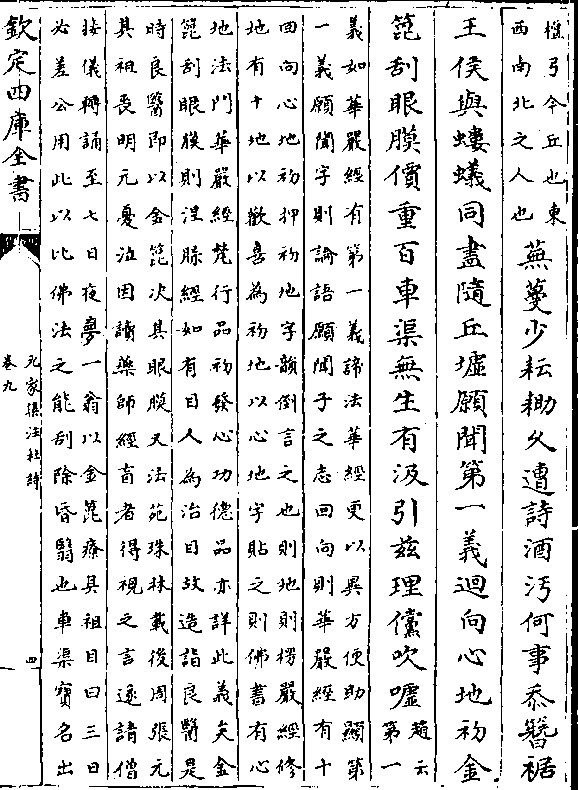 檀弓今丘也東
西南北之人也
蕪蔓少耘鋤久遭詩酒汚何事忝簪裾
王侯與螻蟻同盡隨丘墟願聞第一義迴向心地初金
箆刮眼膜價重百車渠無生有汲引兹理儻吹噓
趙云
第一
義如華嚴經有第一義諦法華經更以異方便助顯第
一義願聞字則論語願聞子之志回向則華嚴經有十
回向心地初押初地字韻倒言之也則地則楞嚴經修
地有十地以歡喜為初地以心地字貼之則佛書有心
地法門華嚴經梵行品初發心功徳品亦詳此義矣金
箆刮眼膜則涅槃經如有目人為治目故造詣良醫是
時良醫即以金箆决其眼膜又法苑珠林載後周張元
其祖喪明元憂泣因讀藥師經盲者得視之言遂請僧
按儀轉誦至七日夜夢一翁以金箆療其祖目曰三日
必差公用此以比佛法之能刮除昏翳也車渠寳名出
欽定四庫全書
九家集注杜詩
卷九
四